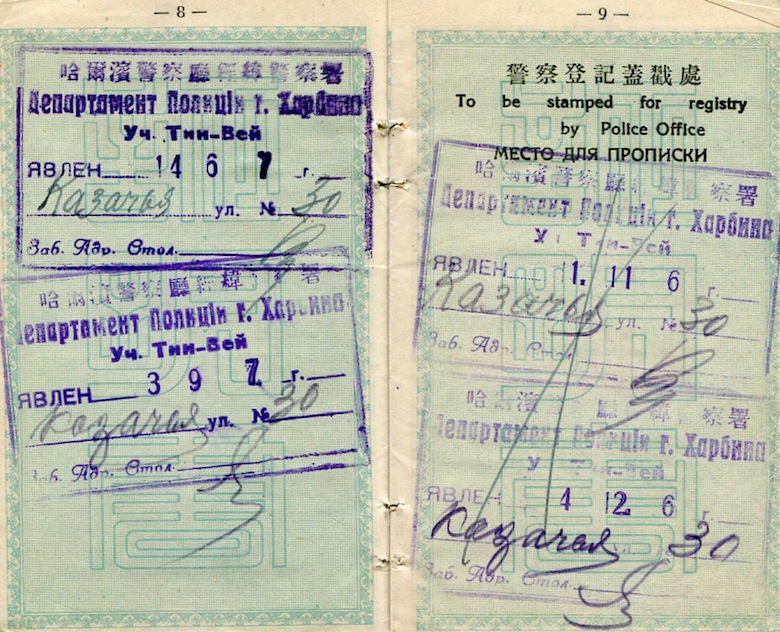 — 8 —
哈爾濱警察廳經緯警察署
Департамент Полицiи г. Харбина
Уч. Тин-Вей
ЯВЛЕН 14 6 7 г.
Казачья ул. № 30
Заб. Адр. Стол.
哈爾濱警察廳經緯 署
Департамент Полицiи г. Харбина
Уч. Тин-Вей
ЯВЛЕН 3 9 7 г.
Казачья ул. № 30
Заб. Адр. Стол.
— 9 —
警察登記蓋戳處
To be stamped for registry
by Police Office
МЕСТО ДЛЯ ПРОПИСКИ
哈爾濱警察廳經緯 察署
Департамент Полицiи г. Харбина
У Тин-Вей
ЯВЛЕН 1. 11 6 г.
Казачья ул. № 30
Заб. Адр. Стол.
哈爾濱 廳 緯 察署
Департамент Полицiи г. Харбина
У Тин-Вей
ЯВЛЕН 4 12 6 г.
Казачья 30
Заб. Адр. Стол.